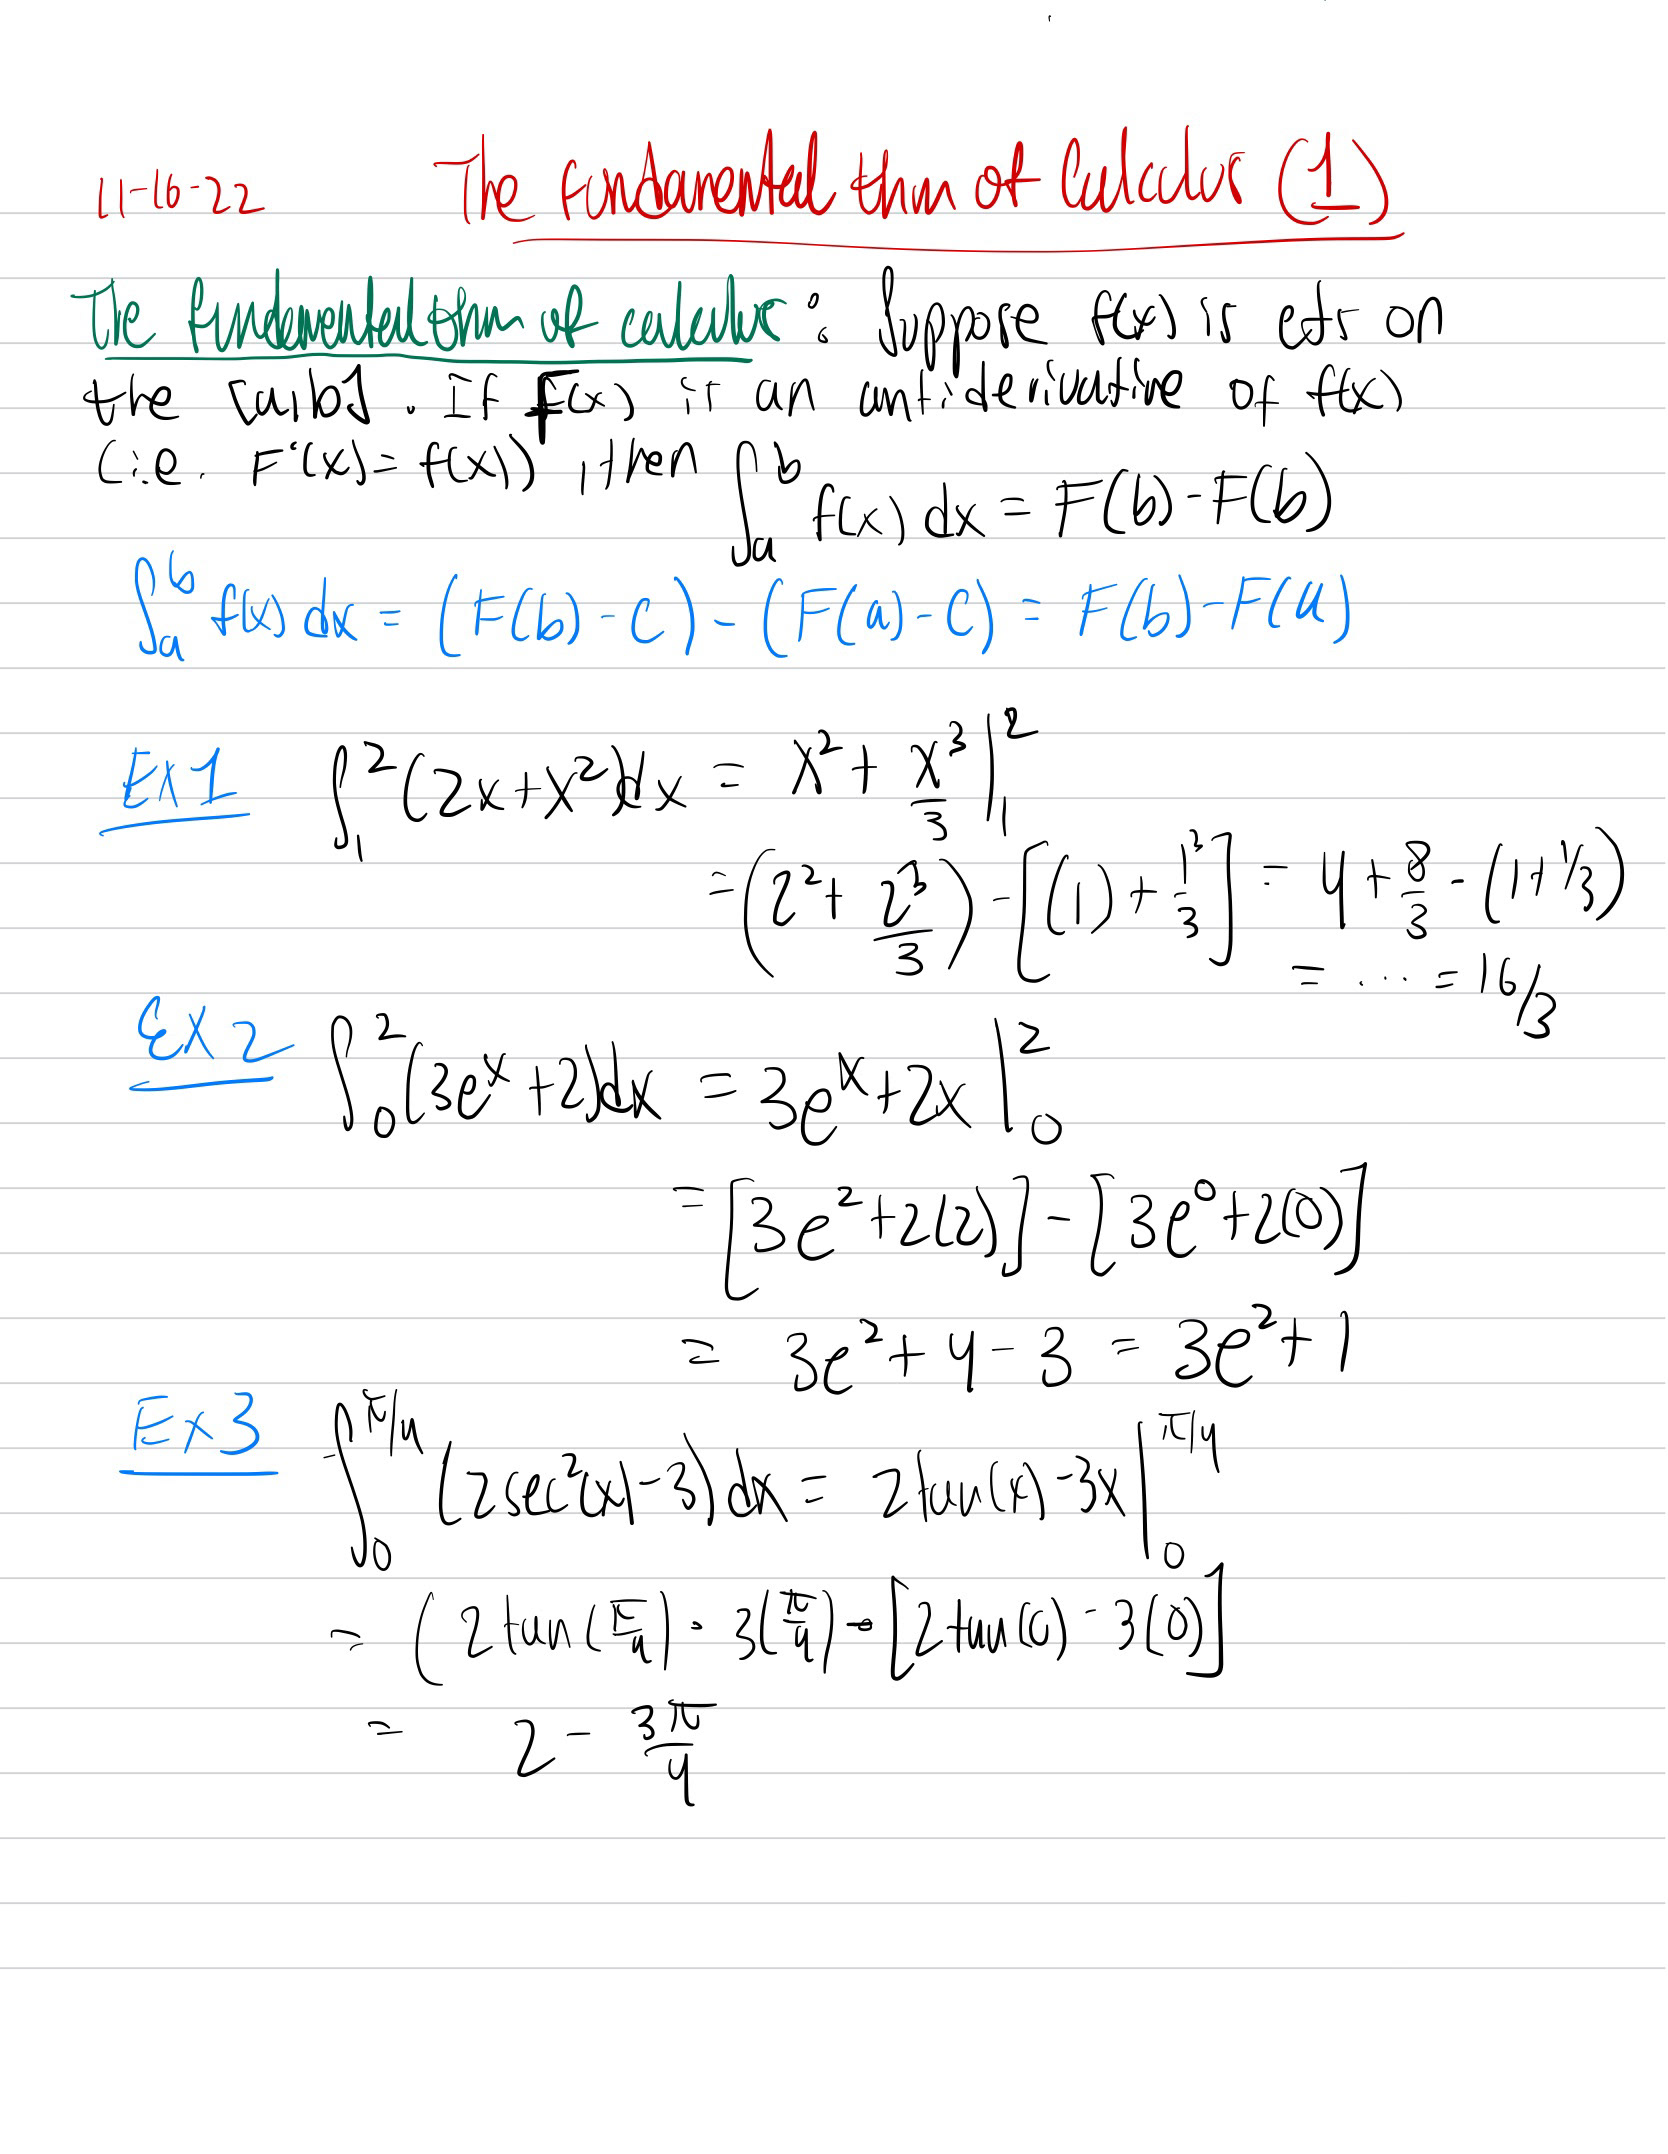 11-16-22 The fundamental thm of Calculus (1)
The fundemental thm of calculus : Suppose f(x) is cts on
the [a,b] . If F(x) is an antiderivative of f(x)
(i.e. F'(x) = f(x)) , then ∫_a^b f(x) dx = F(b) - F(b)
∫_a^b f(x) dx = (F(b) - C) - (F(a) - C) = F(b) - F(a)
Ex 1 ∫_1^2 (2x + x^2) dx = x^2 + x^3/3 |_1^2
= (2^2 + 2^3/3) - [(1) + 1^3/3] = 4 + 8/3 - (1 + 1/3)
= ... = 16/3
Ex 2 ∫_0^2 (3e^x + 2) dx = 3e^x + 2x |_0^2
= [3e^2 + 2(2)] - [3e^0 + 2(0)]
= 3e^2 + 4 - 3 = 3e^2 + 1
Ex 3 ∫_0^{π/4} (2sec^2(x) - 3) dx = 2tan(x) - 3x |_0^{π/4}
= (2tan(π/4) - 3(π/4) - [2tan(0) - 3(0)]
= 2 - 3π/4